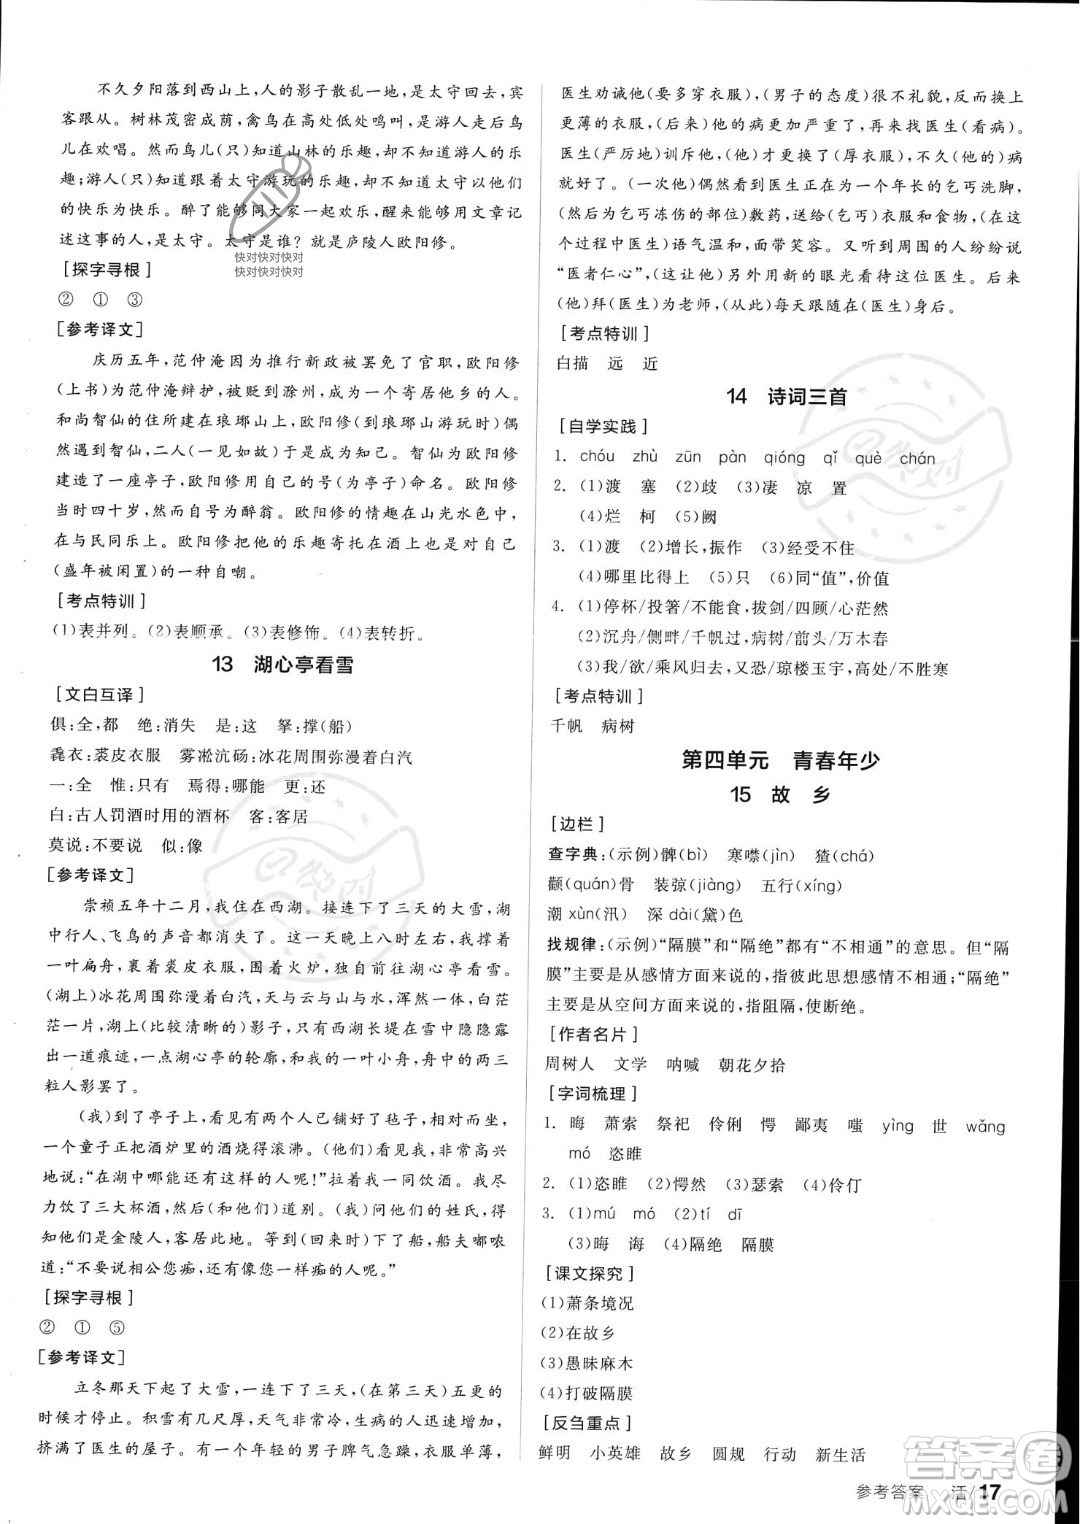 不久夕阳落到西山上,人的影子散乱一地,是太守回去,宾
客跟从。树林茂密成荫,禽鸟在高处低处鸣叫,是游人走后鸟
儿在欢唱。然而鸟儿(只)知道山林的乐趣,却不知道游人的乐
趣;游人(只)知道跟着太守游玩的乐趣,却不知道太守以他们
的快乐为快乐。醉了能够同大家一起欢乐,醒来能够用文章记
述这事的人,是太守。太守是谁?就是庐陵人欧阳修。
[探字寻根]
② ① ③
[参考译文]
庆历五年,范仲淹因为推行新政被罢免了官职,欧阳修
(上书)为范仲淹辩护,被贬到滁州,成了一个寄居他乡的人。
和尚智仙的住所建在琅琊山,欧阳修(到琅琊山游玩时)偶
然遇到智仙,二人(一见如故)成了知音。智仙为欧阳修
建造了一座亭子,欧阳修用自己的号(为亭子)命名。欧阳修
当时四十岁,然而自号为醉翁。欧阳修的情趣在山光水色中,
在与民同乐中。欧阳修把他的乐趣寄托在酒上,是对自己
(盛年被闲置)的一种自嘲。
[考点特训]
(1)表并列。(2)表顺承。(3)表修饰。(4)表转折。
13 湖心亭看雪
[文白互译]
俱:全,都 绝:消失 是:这 拏:撑(船)
毳衣:裘皮衣服 雾凇沆砀:冰花周围弥漫着白汽
一:全 惟:只有 焉得:哪能 更:还
白:古人罚酒时用的酒杯 客:客居
莫说:不要说 似:像
[参考译文]
崇祯五年十二月,我住在西湖。接连下了三天的大雪,湖
中行人、飞鸟的声音都消失了。这一天晚上八点左右,我撑着
一叶扁舟,裹着裘皮衣服,围着火炉,独自前往湖心亭看雪。
(湖上)冰花周围弥漫着白汽,天与云与山与水,浑然一体,白茫
茫一片,湖上(比较清晰的)影子,只有西湖长堤在雪中隐隐露
出一道痕迹,一点湖心亭的轮廓,和我的一叶小舟,舟中的两三
粒人影罢了。
(我)到了亭子上,看见有两个人已铺好了毡子,相对而坐,
一个童子正把酒炉里的酒烧得滚沸。(他们)看见我,非常高兴
地说:“在湖中哪能还有这样的人呢!”拉着我一同饮酒。我尽
力饮了三大杯酒,然后(和他们)道别。(我)问他们的姓氏,得
知他们是金陵人,客居此地。等到(我)下船,船夫嘟哝
道:“不要说相公您痴,还有像您一样痴的人呢。”
[探字寻根]
② ① ⑤
[参考译文]
立冬那天下起了大雪,一连下了三天,(在第三天)五更的
时候才停止。积雪有几尺厚,天气非常冷,生病的人越来越多,
挤满了医生的屋子。有一个年轻的男子脾气急躁,衣服单薄,
医生劝诫他(要多穿衣服),(男子的态度)很不礼貌,反而换上
更薄的衣服,(后来)他的病加重了,再来找医生(看病)。
医生(严厉地)训斥他,(他)才更换了(厚衣服),不久(他的)病
就好了。(一次他)偶然看见医生在为一个年长的乞丐洗脚,
(然后为乞丐冻伤的部位)敷药,送给(乞丐)衣服和食物,(在这
个过程中医生)语气温和,面带笑容。又听到周围的人纷纷说
“医者仁心”,(这让他)另外用新的眼光看待这位医生。后来
(他)拜(医生)为老师,(从此)每天跟随在(医生)身后。
[考点特训]
白描 远 近
14 诗词三首
[自学实践]
1. chóu zhù zūn pàn qióng qǐ què chán
2. (1)渡 塞 (2)歧 (3)凄 凉 置
(4)烂 柯 (5)阙
3. (1)渡 (2)增长,振作 (3)经受不住
(4)哪里比得上 (5)只 (6)同“值”,价值
4. (1)停杯/投箸/不能食,拔剑/四顾/心茫然
(2)沉舟/侧畔/千帆过,病树/前头/万木春
(3)我/欲/乘风归去/又恐/琼楼玉宇,高处/不胜寒
[考点特训]
千帆 病树
第四单元 青春年少
15 故 乡
[边栏]
查字典:(示例)髀(bì) 寒噤(jìn) 猹(chá)
颧(quán)骨 装弶(jiàng) 五行(xíng)
潮 xùn(汛) 深 dài(黛)色
找规律:(示例)“隔膜”和“隔绝”都有“不相通”的意思。但“隔
膜”主要是从感情方面来说的,指彼此思想感情不相通;“隔绝”
主要是从空间方面来说的,指阻隔,使断绝。
[作者名片]
周树人 文学 呐喊 朝花夕拾
[字词梳理]
1. 晦 萧索 祭祀 伶俐 愕 鄙夷 嗤 yìng 世 wǎng
mó 恣睢
2. (1)恣睢 (2)愕然 (3)瑟索 (4)伶仃
3. (1)mú mó (2)tí dī
(3)晦 海 (4)隔绝 隔膜
[课文探究]
(1)萧条境况
(2)在故乡
(3)愚昧麻木
(4)打破隔膜
[反刍重点]
鲜明 小英雄 故乡 圆规 行动 新生活
参考答案 活/17
快对快对快对
快对快对快对
答案圈
MXQE.COM